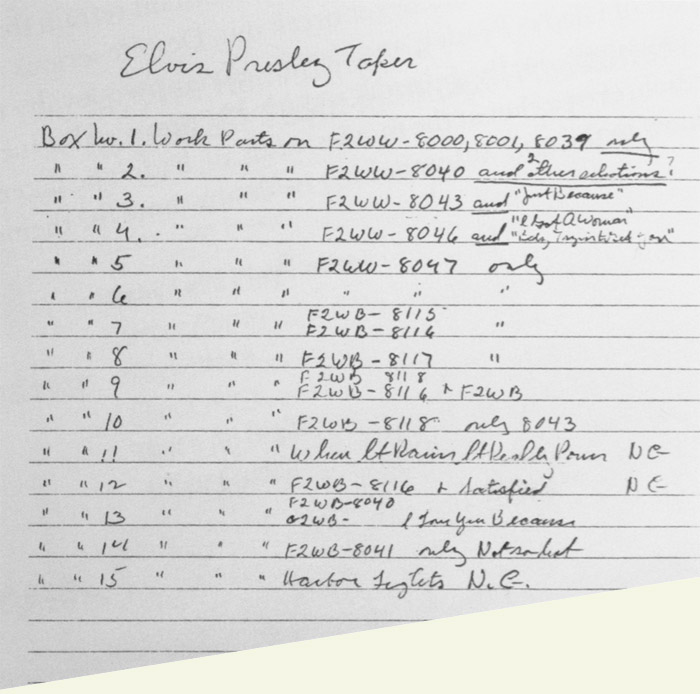 Elvis Presley Tapes
Box No. 1. Work Parts on F2WW-8000, 8001, 8039 only
" " 2. " " " F2WW-8040 and 2 other selections?
" " 3. " " " F2WW-8043 and "Just Because"
" " 4. " " " F2WW-8046 and "I Got A Woman"
" " 5 " " " F2WW-8047 only
" " 6 " " " " " "
" " 7 " " F2WB-8115
F2WB-8116 "
" " 8 " " " F2WB-8117 "
" " 9 " " " F2WB 8118
F2WB-8116 + F2WB
" " 10 " " " F2WB-8118 only 8043
" " 11 " " " When It Rains, It Really Pours NG
" " 12 " " " F2WB-8116 + Satisfied NG
" " 13 " " " F2WB-8040
F2WB- I Love You Because
" " 14 " " " F2WB-8041 only Not so hot
" " 15 " " " Harbor Lights N.G.